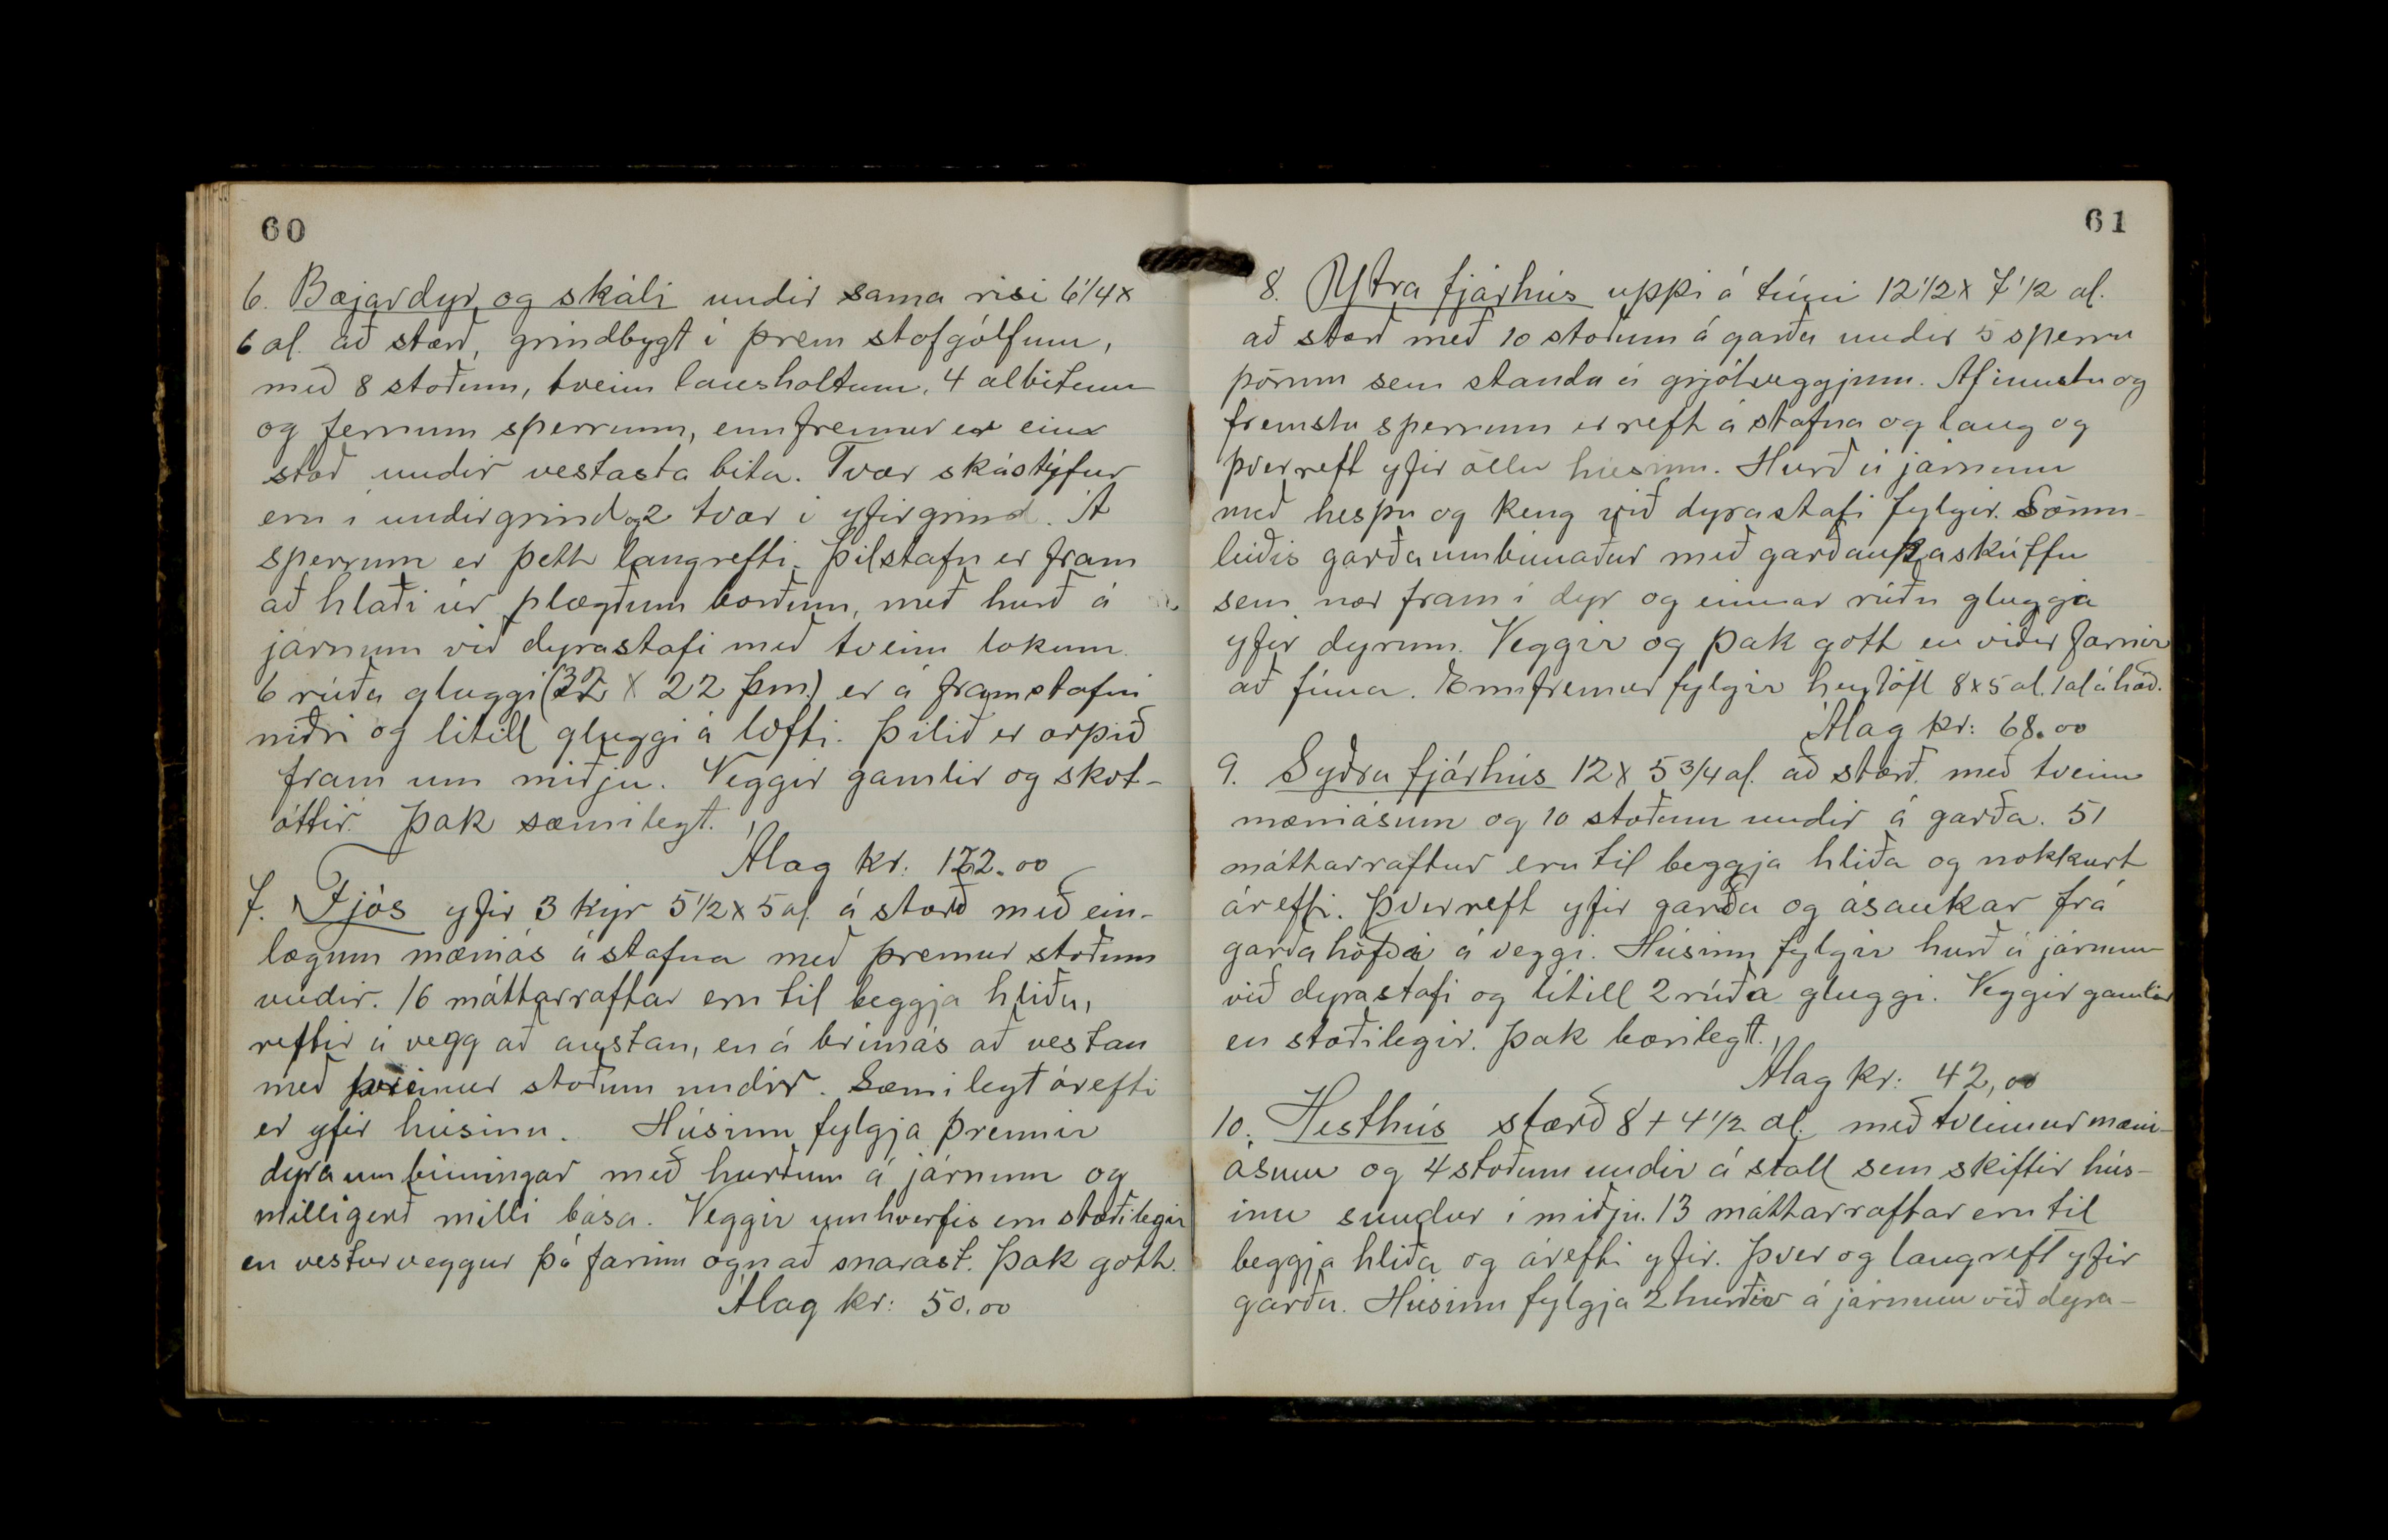 60
6. Bæjardyr og skáli undir sama risi 6 1/4 x
6 al. að stærð, grindbygt í þrem stafgólfum,
með 8 stoðum, tveim lausholtum, 4 albitum
og fernum sperrum, ennfremur er ein
stoð undir vestasta bita. Tvær skástýfur
eru í undirgrind og 2 tvær í yfirgrind. Á
sperrum er þett langrefti. Þilstafn er fram
að hlaði úr plægðum borðum, með hurð á
járnum við dyrastafi með tveim lokum.
6 rúða gluggi (32 x 22 þm.) er á framstafni
niðri og lítill gluggi á lofti. Þilið er orpið
fram um miðju. Veggir gamlir og skot-
óttir. Þak sæmilegt.
Álag kr: 122.00
7. Fjós yfir 3 kýr 5 1/2 x 5 al. á stærð með ein-
lægum mæniás á stafna með þremur stoðum
undir. 16 máttarraftar eru til beggja hliða,
reftir á vegg að austan, en á brúnás að vestan
með stoðum undir. Sæmilegt árefti
er yfir húsinu. Húsinu fylgja þrennir
dyraumbúningar með hurðum á járnum og
milligerð milli bása. Veggir umhverfis eru stæðilegir
en vesturveggur þó farinn ögn að snarast. Þak gott.
Álag kr: 50.00
61
8. Ytra fjárhús uppi á túni 12 1/2 x 7 1/2 al.
að stærð með 10 stoðum á garða undir 5 sperru
pörum sem standa á grjótveggjum. Af innstu og
fremstu sperrum er reft á stafna og lang og
þverreft yfir öllu húsinu. Hurð á járnum
með hespu og keng við dyrastafi fylgir. Sömu-
leiðis garðaumbúnaður með skúffu
sem nær fram í dyr og einnar rúðu gluggi
yfir dyrum. Veggir og þak gott en viðir farnir
að fúna. Ennfremur fylgir heytóft 8 x 5 al. 1 al á hæð.
Álag kr: 68.00
9. Syðra fjárhús 12 x 5 3/4 al. að stærð með tveim
mæniásum og 10 stoðum undir á garða. 51
máttarraftur eru til beggja hliða og nokkurt
árefti. Þverreft yfir garða og ásaukar frá
garðahöfði á veggi. Húsinu fylgir hurð á járnum
við dyrastafi og lítill 2 rúða gluggi. Veggir gamlir
en stæðilegir. Þak bærilegt.
Álag kr: 42,00
10. Hesthús stærð 8 + 4 1/2 al. með tveimur mæni-
ásum og 4 stoðum undir á stall sem skiftir hús-
inu sundur í miðju. 13 máttarraftar eru til
beggja hliða og árefti yfir. Þver og langreft yfir
garða. Húsinu fylgja 2 hurðir á járnum við dyra-